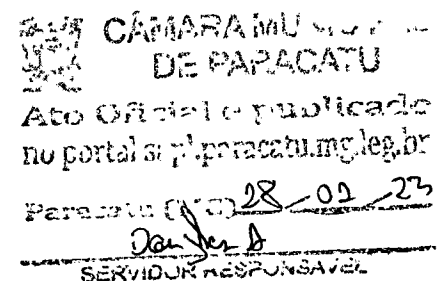 CÂMARA MU
DE PARACATU
Ato Oficial e publicado
no portal sapl.paracatu.mg.leg.br
Paracatu (MG) 28 / 02 / 23
SERVIDOR RESPONSÁVEL